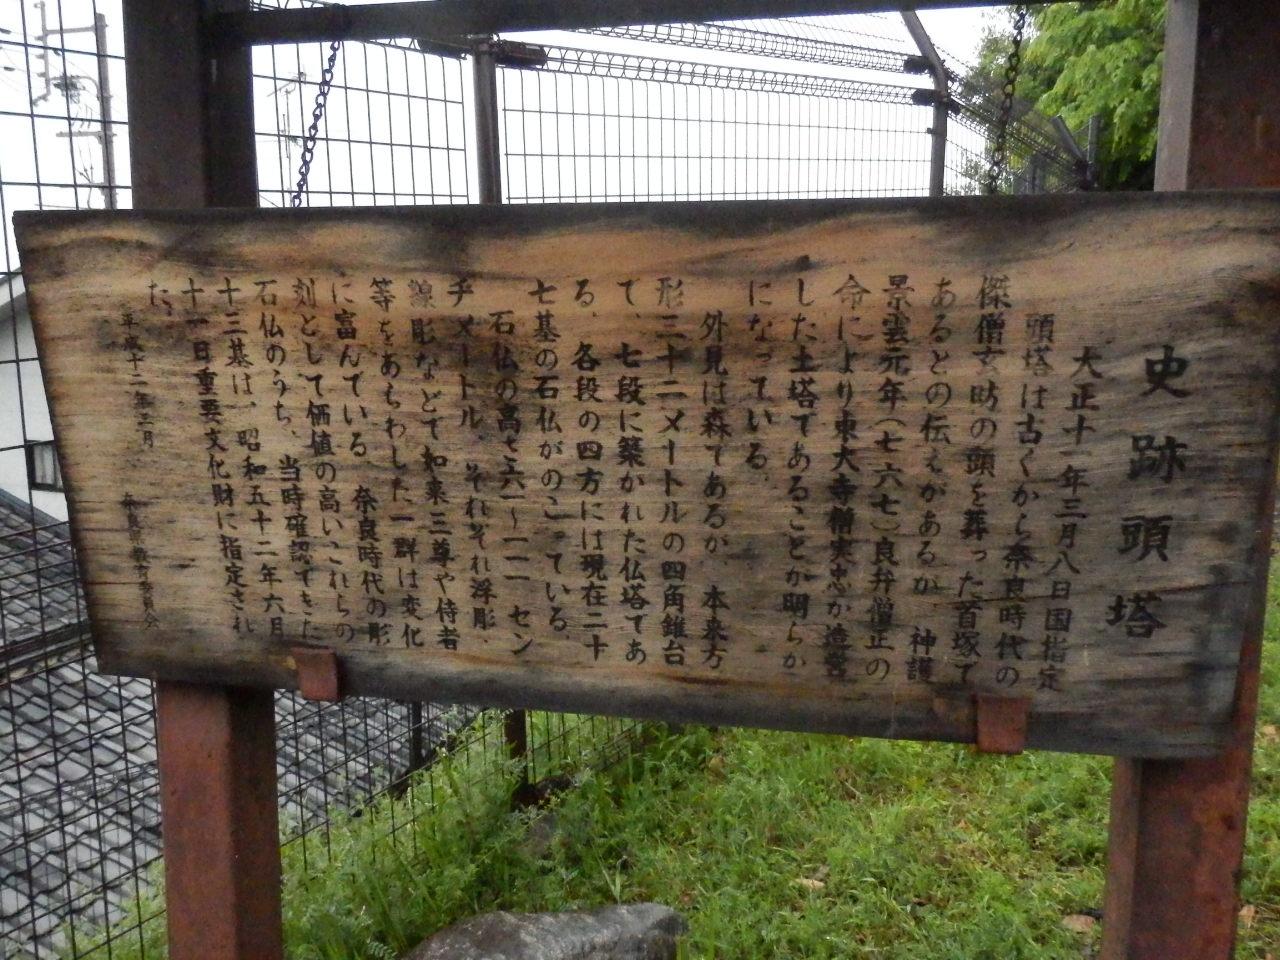 史跡頭塔
大正十一年三月八日国指定
頭塔は古くから奈良時代の
傑僧玄昉の頭を葬った首塚で
あるとの伝えがあるが、神護
景雲元年(七六七)良弁僧正の
命により東大寺僧実忠が造営
した土塔であることが明らか
になっている。
外見は森であるが、本来方
形三十二メートルの四角錐台
で、七段に築かれた仏塔であ
る。各段の四方には現在二十
七基の石仏がのこっている。
石仏の高さ六一〜一一一セン
チメートル。それぞれ浮彫、
線彫などで如来三尊や侍者
等をあらわした一群は変化
に富んでいる。奈良時代の彫
刻として価値の高いこれらの
石仏のうち、当時確認できた
十三基は、昭和五十二年六月
十一日重要文化財に指定され
た。
平成十二年三月 奈良県教育委員会